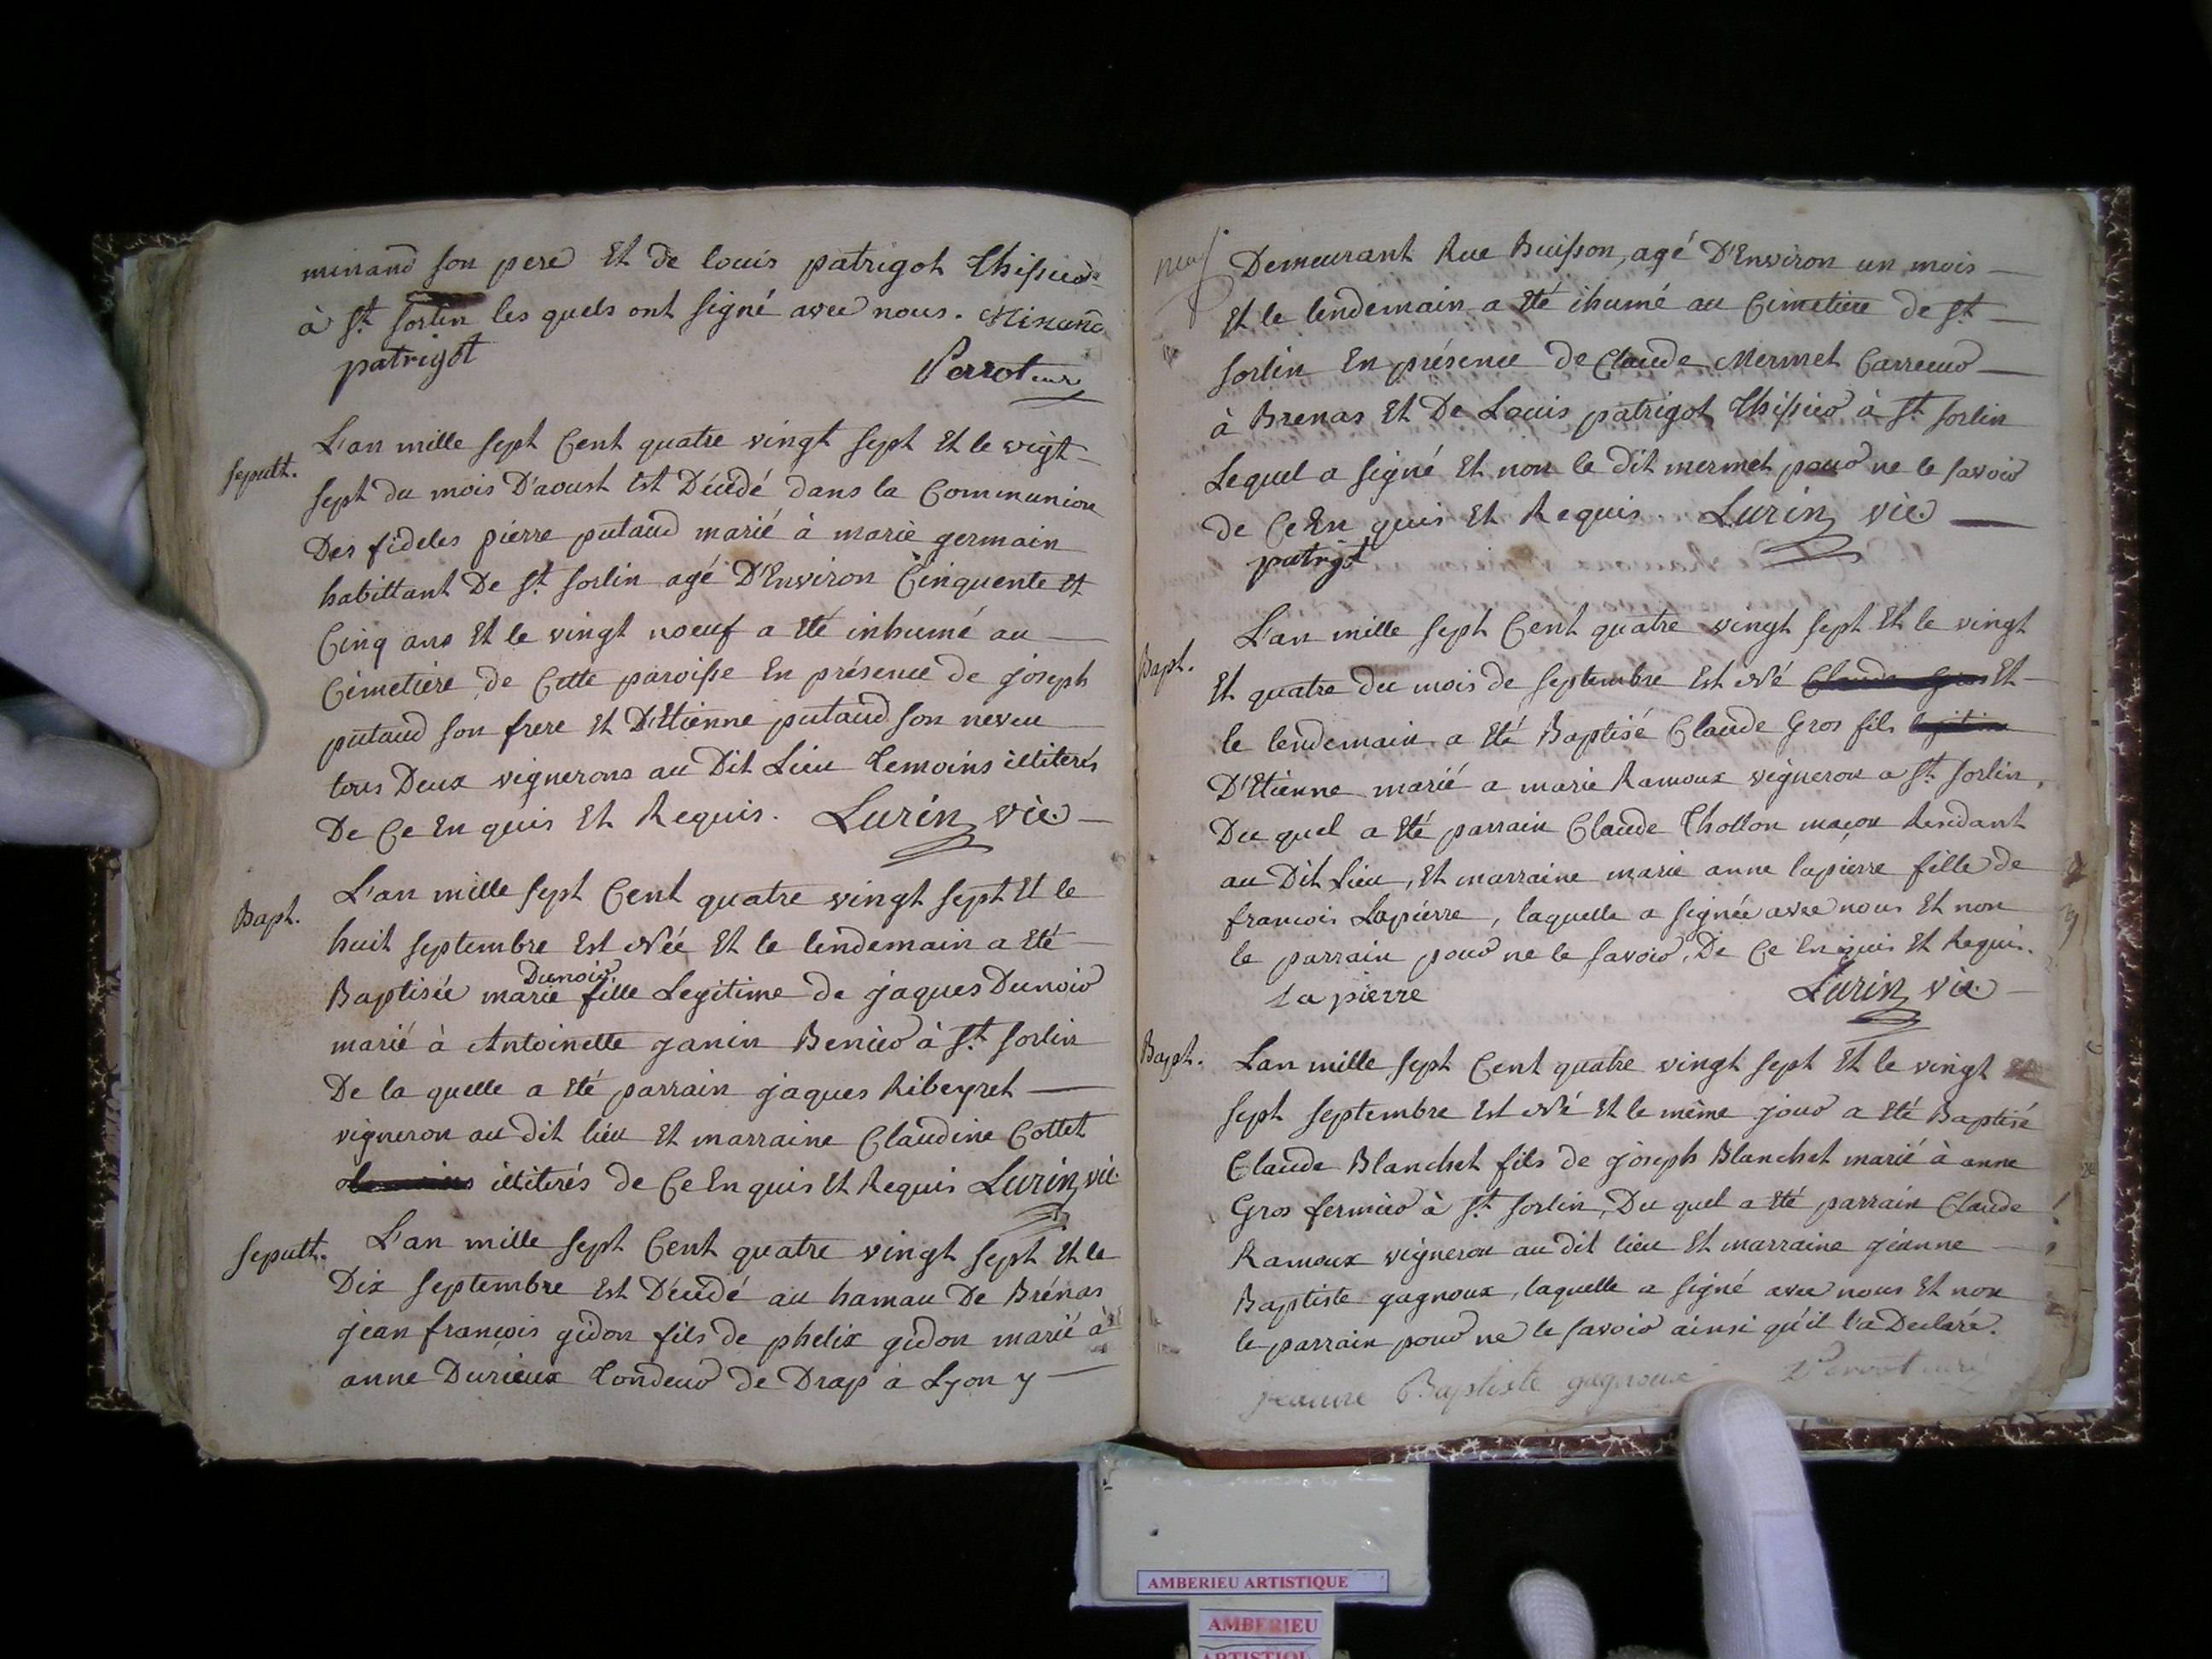 minand son pere Et de louis patrigot thissier
à St. sorlin les quels ont signé avec nous. Minand
patrigot Perrot curé
Sepult. L'an mille sept Cent quatre vingt sept Et le vigt
sept du mois D'aoust Est Décédé dans la Communion
Des fideles pierre putaud marié à marie germain
habittant De St. sorlin agé D'Environ Cinquente Et
Cinq ans Et le vingt noeuf a Eté inhumé au
Cimetiere de Cette paroisse En présence de joseph
putaud son frere Et D'Etienne putaud son neveu
tous Deux vignerons au Dit Lieu Temoins illiterés
De Ce En quis Et Requis. Lurin vic.
Bapt. L'an mille sept Cent quatre vingt sept Et le
huit septembre Est Née Et le lendemain a Eté
Dunoir
Baptisée marie fille Legitime de jaques Dunoir
marié à Antoinette janin Benier à St. sorlin
De la quelle a Eté parrain jaques Ribeyret
vigneron au dit lieu Et marraine Claudine Cottet
illiterés de Ce En quis Et Requis Lurin vic.
Sepult. L'an mille sept Cent quatre vingt sept Et le
Dix septembre Est Décédé au hamau De Brénas
jean françois gidon fils de phelix gidon marié à
anne Durieux Tondeur de Drap à Lyon y
neuf Demeurant Rue Buisson, agé D'Environ un mois
Et le lendemain a Eté ihumé au Cimetiere de St.
sorlin En présence de Claude Mermet Carreur
à Brenas Et De Louis patrigot thissier à St. sorlin
Lequel a signé Et non le dit mermet pour ne le savoir
de Ce En quis Et Requis. Lurin vic.
patrigot
Bapt. L'an mille sept Cent quatre vingt sept Et le vingt
Et quatre du mois de septembre Est Né Claude Gros Et
le lendemain a Eté Baptisé Claude Gros fils legitime
D'Etienne marié a marie Ramoux vigneron a St. sorlin,
Du quel a Eté parrain Claude Thollon maçon Residant
au Dit Lieu, Et marraine marie anne lapierre fille de
francois Lapierre, laquelle a signée avec nous Et non
le parrain pour ne le savoir, De Ce En quis Et Requis.
La pierre Lurin vic.
Bapt. Lan mille sept Cent quatre vingt sept Et le vingt
sept septembre Est Né Et le même jour a Eté Baptisé
Claude Blanchet fils de joseph Blanchet marié à anne
Gros fermier à St. sorlin, Du quel a Eté parrain Claude
Ramoux vigneron au dit lieu Et marraine jeanne
Baptiste gagnoux, laquelle a signé avec nous Et non
le parrain pour ne le savoir ainsi qu'il l'a Declaré.
jeanne Baptiste gagnoux Perrot curé
AMBERIEU ARTISTIQUE
AMBERIEU
ARTISTIQUE